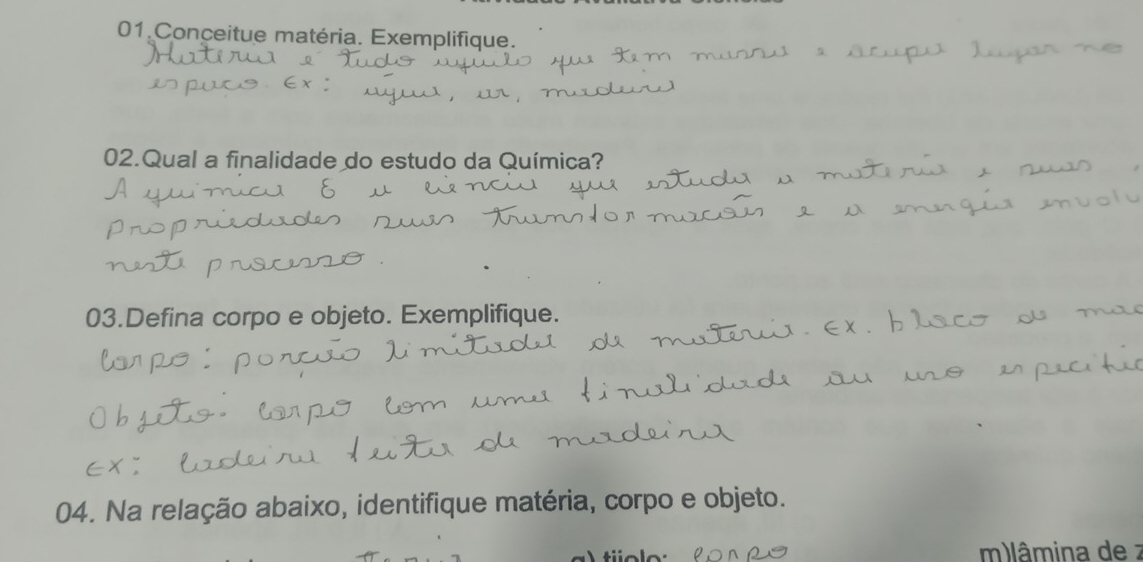 01.Conceitue matéria. Exemplifique.
Materia e tudo aquilo que tem massa e ocupa lugar no
espaço. Ex: água, ar, madeira
02.Qual a finalidade do estudo da Química?
A quimica é a ciencia que estuda a materia e suas
propriedades suas transformações e a energia envolv
neste processo.
03.Defina corpo e objeto. Exemplifique.
Corpo: porção limitada de materia. Ex. bloco de mad
Objeto: corpo com uma finalidade ou uso especific
Ex: cadeira feita de madeira
04. Na relação abaixo, identifique matéria, corpo e objeto.
g) tijolo: corpo
m)lâmina de z